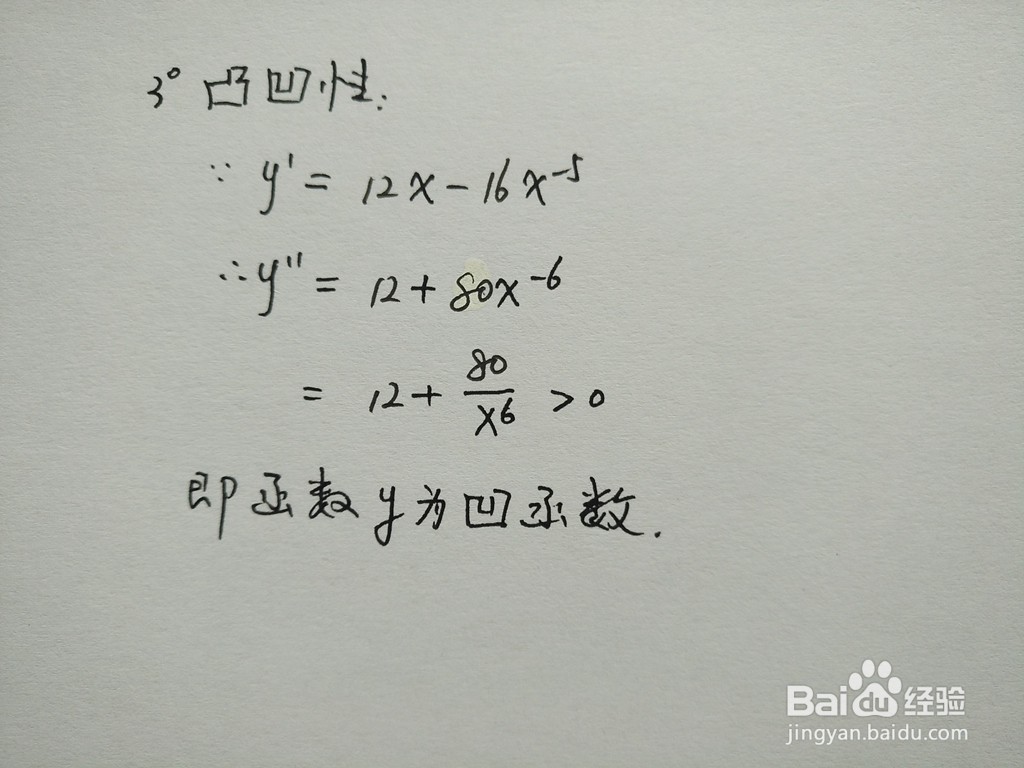 3° 凸凹性:
∵ y' = 12x - 16x⁻⁵
∴ y'' = 12 + 80x⁻⁶
= 12 + 80/x⁶ > 0
即函数y为凹函数.
Bai du 经验
jingyan.baidu.com